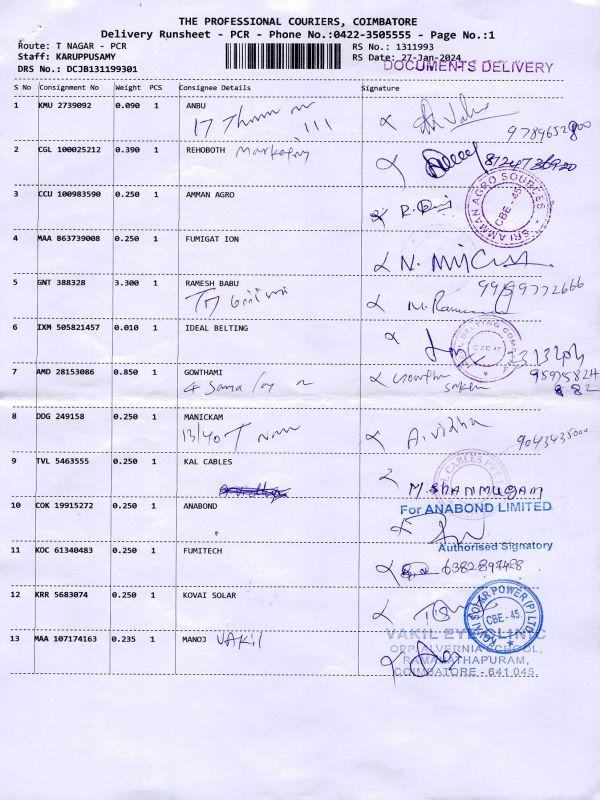 THE PROFESSIONAL COURIERS, COIMBATORE
Delivery Runsheet - PCR - Phone No.:0422-3505555 - Page No.:1
Route: T NAGAR - PCR
RS No.: 1311993
Staff: KARUPPUSAMY
RS Date: 27-Jan-2024
DRS No.: DCJB131199301
DOCUMENTS DELIVERY
S No Consignment No Weight PCS Consignee Details Signature
1 KMU 2739092 0.090 1 ANBU
17
2 CGL 100025212 0.390 1 REHOBOTH Marketing
3 CCU 100983590 0.250 1 AMMAN AGRO
SRI AMMAN AGRO SOURCES
CBE - 45
4 MAA 863739008 0.250 1 FUMIGAT ION
5 GNT 388328 3.300 1 RAMESH BABU
6 IXM 505821457 0.010 1 IDEAL BELTING
7 AMD 28153086 0.850 1 GOWTHAMI
8 DDG 249158 0.250 1 MANICKAM
13/40 T
A. vidhu
9043435000
9 TVL 5463555 0.250 1 KAL CABLES
M. SHANMUGAM
10 COK 19915272 0.250 1 ANABOND
For ANABOND LIMITED
Authorised Signatory
11 KOC 61340483 0.250 1 FUMITECH
6382897488
12 KRR 5683074 0.250 1 KOVAI SOLAR
KOVAI SOLAR POWER (P) LTD
CBE - 45
13 MAA 107174163 0.235 1 MANOJ VAKIL
VAKIL EYE CLINIC
OPP. ALVERNIA SCHOOL,
RAMANATHAPURAM,
COIMBATORE - 641 045.